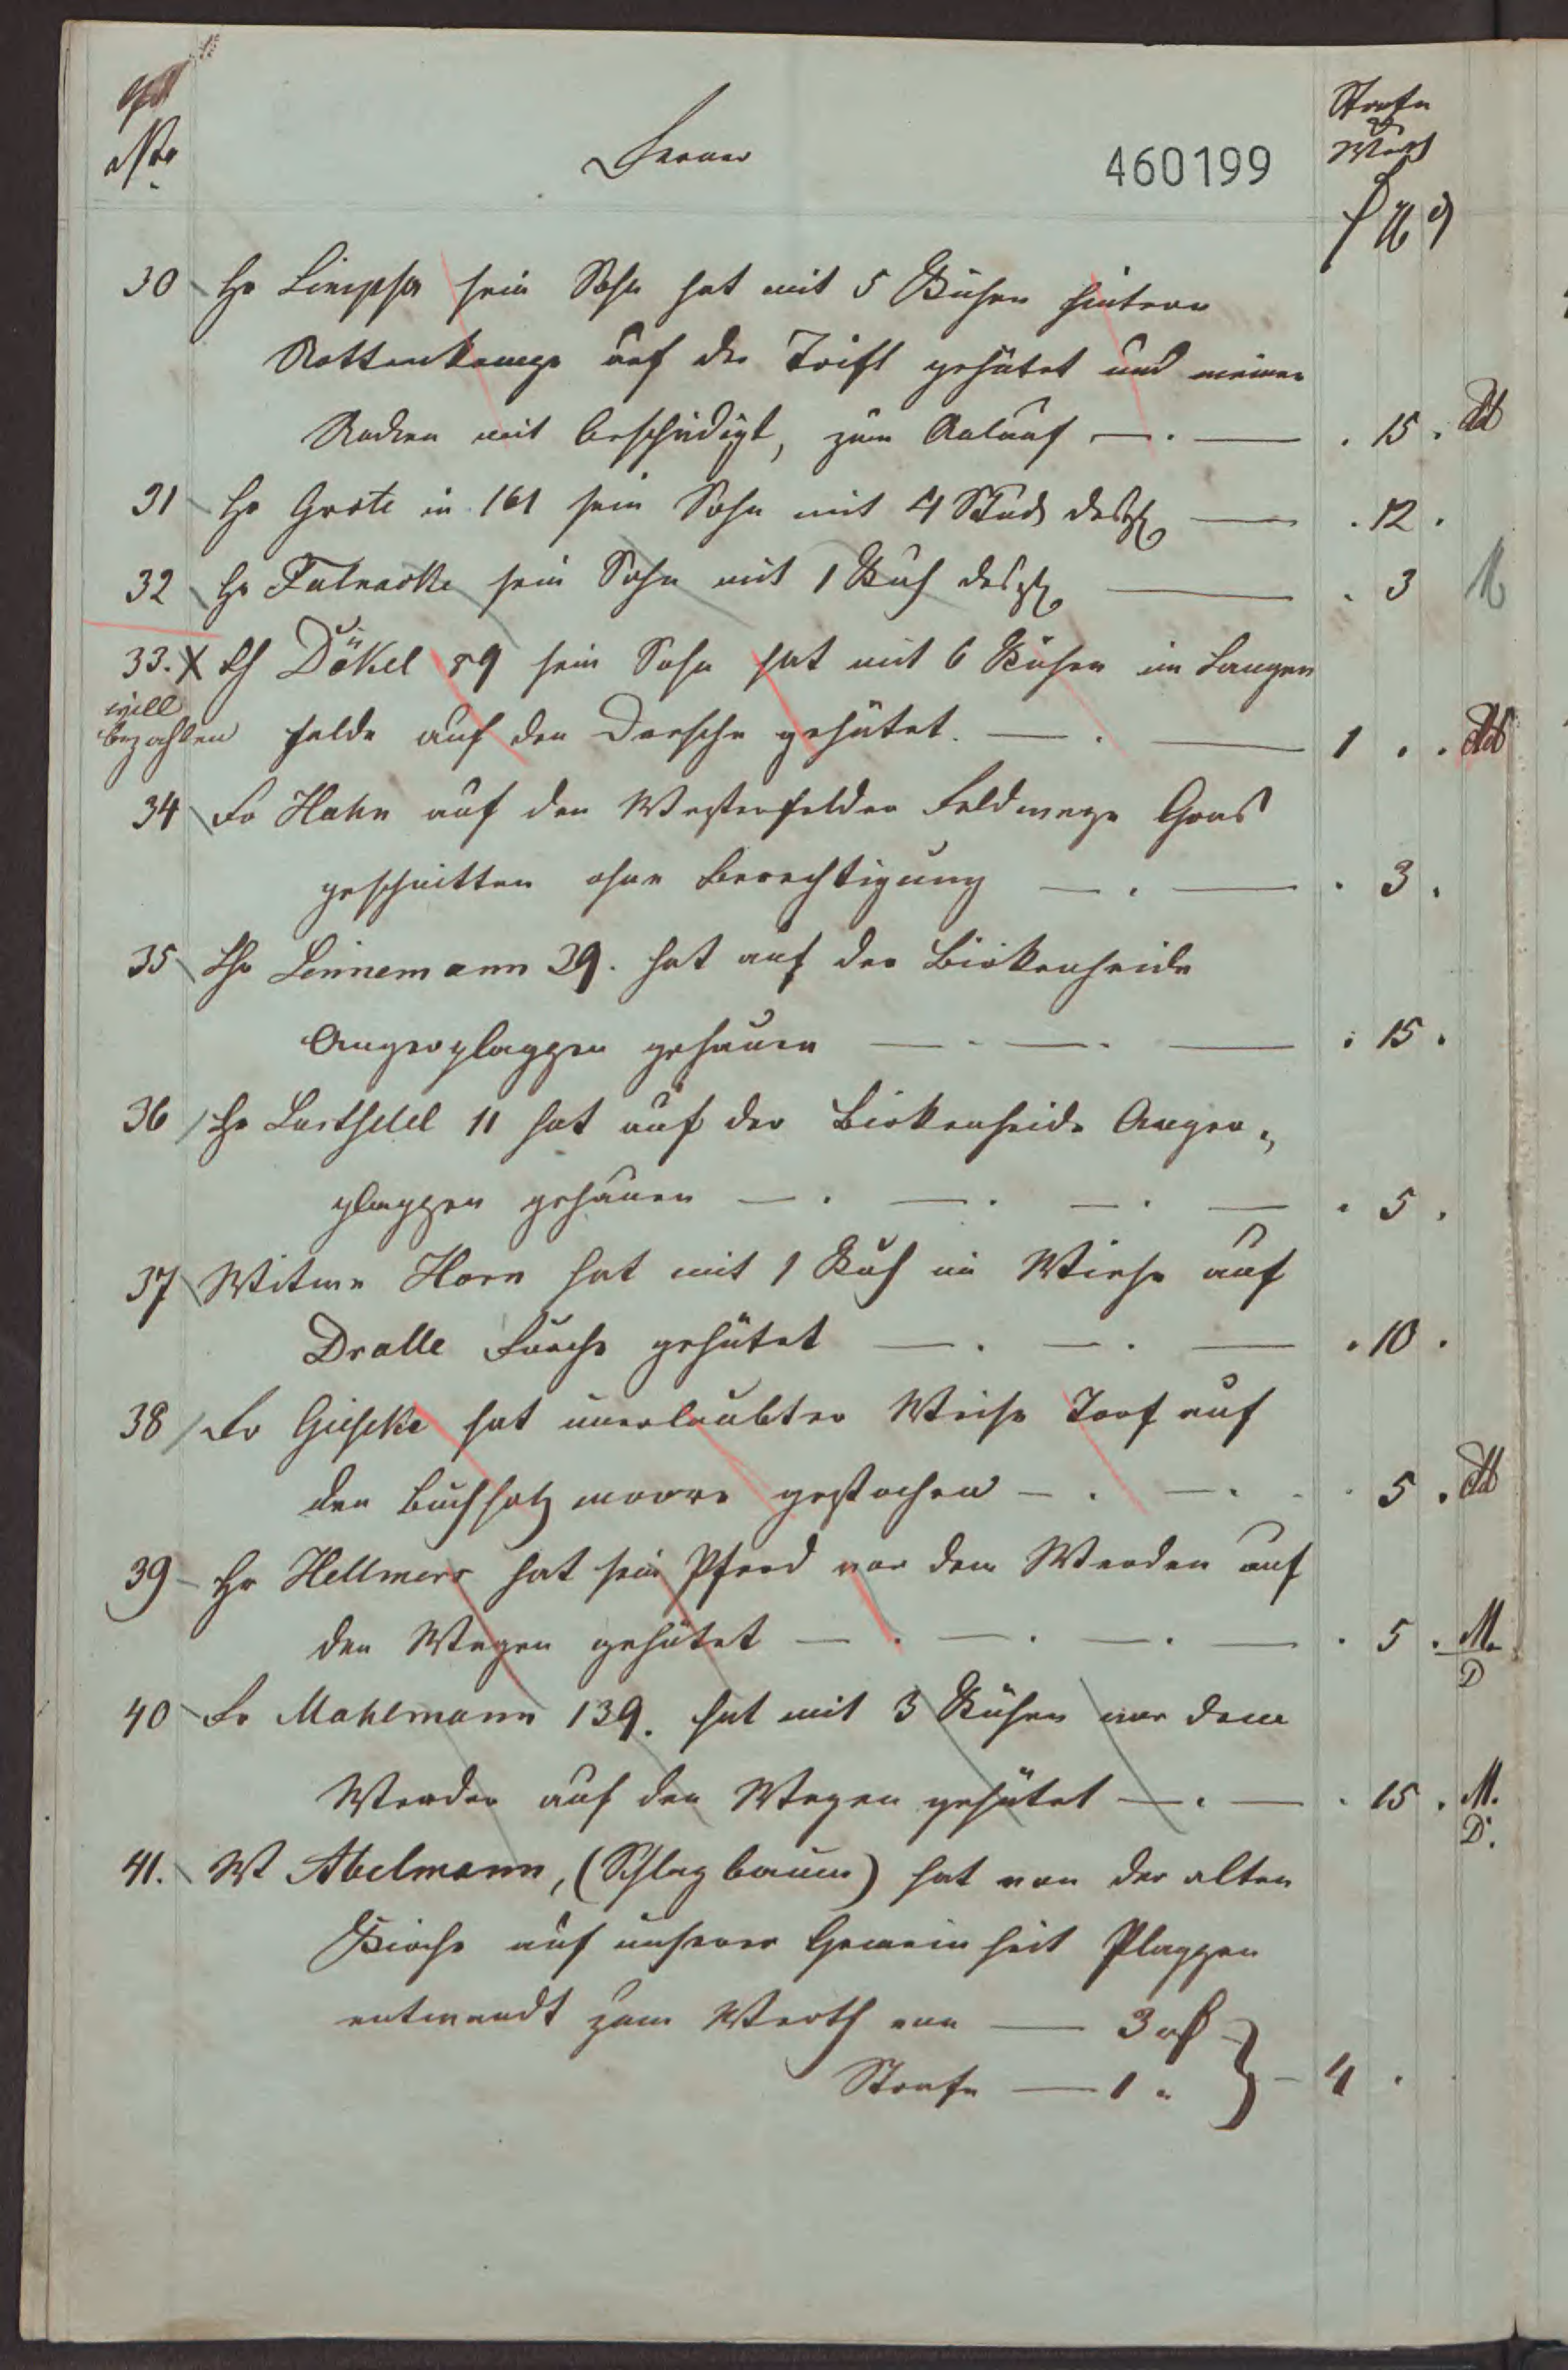 No
Ferner
460199
Strafe
Werth
30 Hr Limpsa sein Sohn hat mit 5 Kühen hintern
Rottenkampe auf der Trift gehütet und meinen
Rocken mit beschädigt, zum — . — . 15 .
31 Hr Grote in 161 sein Sohn mit 4 Stück desgl — . 12 .
32 Hr Fulnacke sein Sohn mit 1 Kuh desgl — . 3 M
33. x Hr Dökel 59 sein Sohn hat mit 6 Kühen im Langen
will
bezahlen
felde auf den Dresche gehütet. — . — 1 . .
34 Fr Hahn auf den Westerfelder Feldwege Gras
geschnitten ohne Berechtigung — . — . 3 .
35 Hr Linnemann 29. hat auf der Birkenheide
Angerplaggen gehauen — . — . — . 15 .
36 Hr 11 hat auf der Birkenheide Anger„
plaggen gehauen — . — . — . — . 5 .
37 Witwe Horn hat mit 1 Kuh in Wiese auf
Dralle Furche gehütet — . — . — . 10 .
38 Fr Gieseke hat unerlaubter Weise Torf auf
den Buchholz moore gestochen — . — . . 5 .
39 Hr Hellmers hat sein Pferd vor dem Werder auf
den Wegen gehütet — . — . — . — . 5 . M.
D
40 Fr Mahlmann 139. hat mit 3 Kühen vor dem
Werder auf den Wegen gehütet — . — . 15 . M.
D.
41. W Abelmann, (Schlagbaum) hat von der alten
Kirche auf unserer Gemeinheit Plaggen
entwandt zum Werth von — 3 rℓ
Strafe — 1 „ } — 4 .